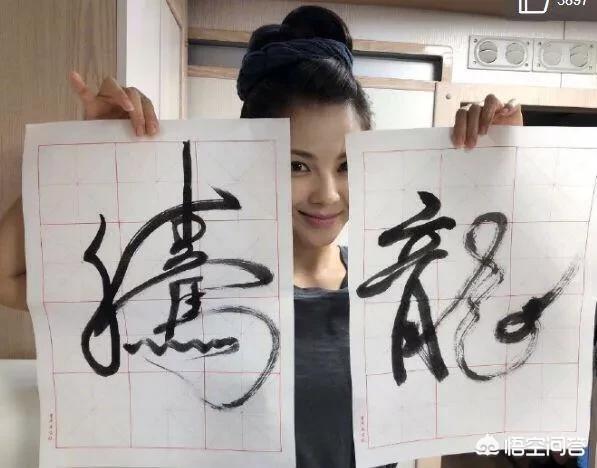 3897
騰
龍
悟空问答